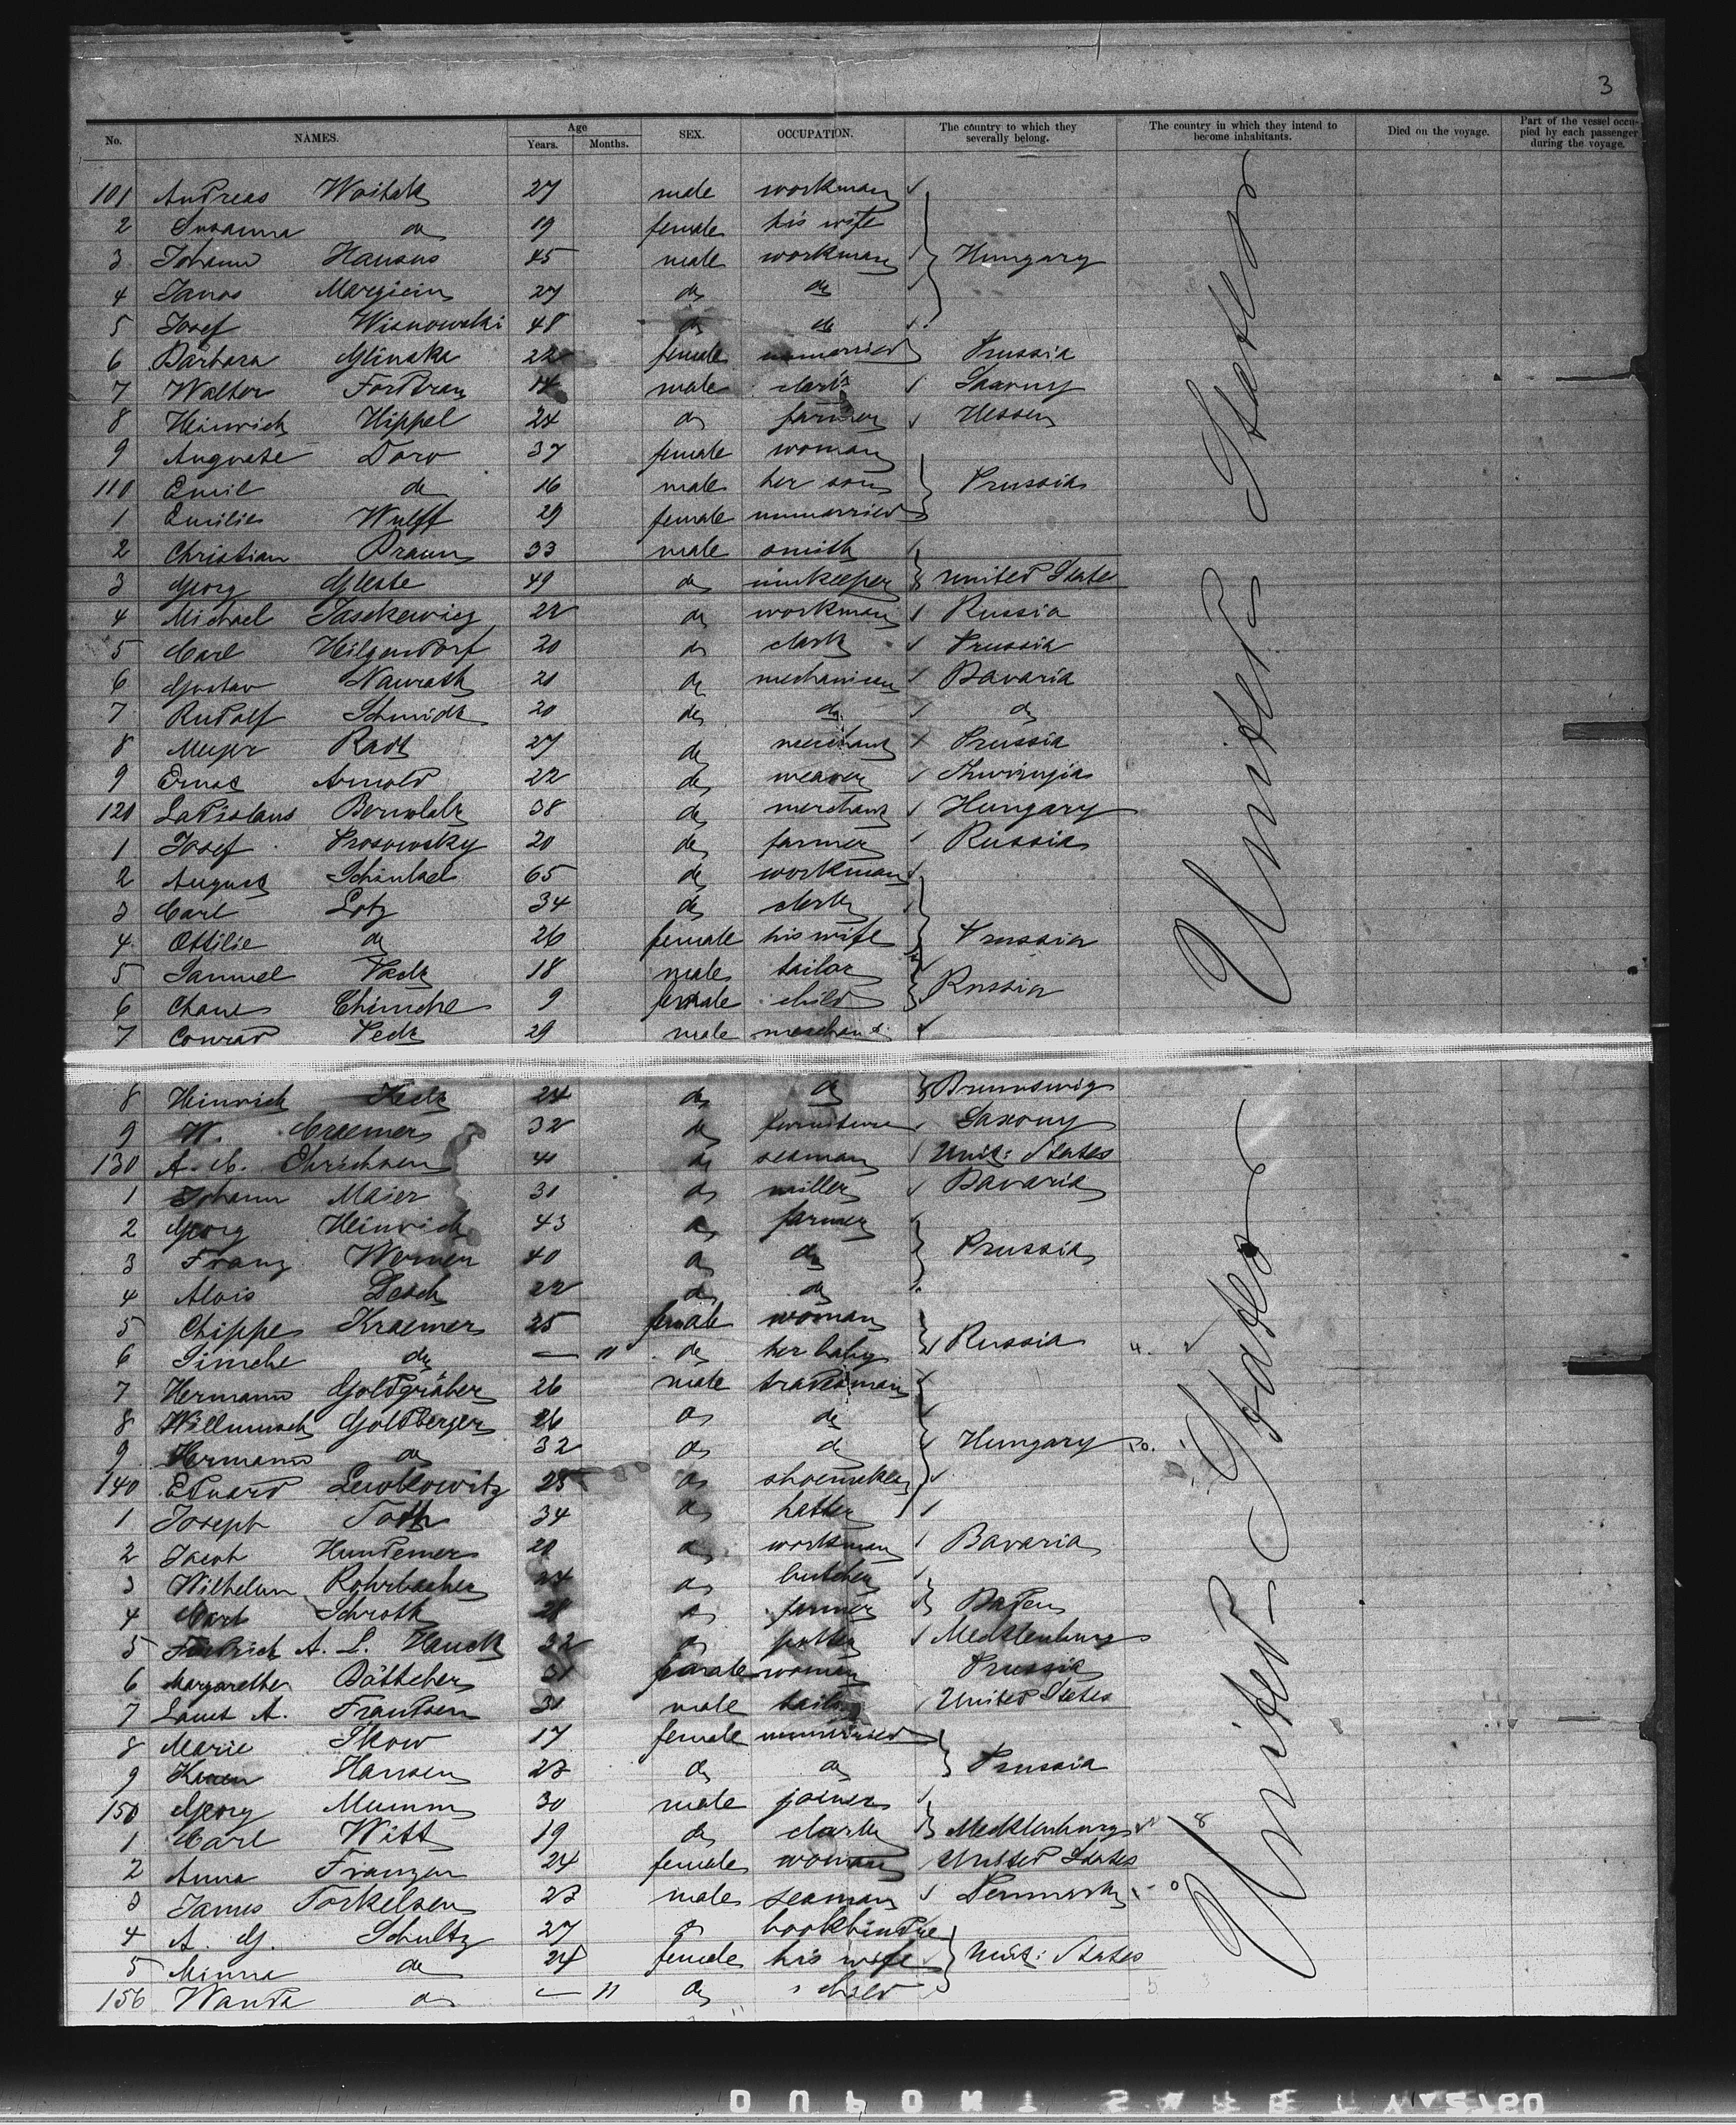 3
No. NAMES. Age Years. Months. SEX. OCCUPATION. The country to which they severally belong. The country in which they intend to become inhabitants. Died on the voyage. Part of the vessel occupied by each passenger during the voyage.
United States
101 Andreas 27 male workman
2 Susanna do 19 female his wife
3 Johann Hausus 45 male workman Hungary
4 Janos 27 do do
5 Josef Wisnowski 48 do do
6 Barbara Glinska 22 female unmarried Prussia
7 Walter Fordran 14 male clark Saxony
8 Heinrich Hippel 24 do farmer Hessen
9 Auguste Doro 37 female woman
110 Emil do 16 male her son Prussia
1 Emilie Wulff 29 female unmarried
2 Christian Braun 33 male smith
3 Georg 49 do innkeeper United State
4 Michael Jaskewicz 22 do workman Russia
5 Carl Hilgendorf 20 do clark Prussia
6 Gustav Nawrath 21 do mechanican Bavaria
7 Rudolf Schmidt 20 do do do
8 Meyer Radt 27 do merchant Prussia
9 Ernst Arnold 22 do weaver Thuringia
120 Ladislaus 38 do merchant Hungary
1 Josef Prosowsky 20 do farmer Russia
2 August Schinkel 65 do workman
3 Carl Lotz 34 do clark
4 Ottilie do 26 female his wife Prussia
5 Samuel 18 male tailor
6 Chane 9 female child Russia
7 Conrad 29 male merchant
8 Heinrich 24 do do Brunswig
9 W. Craemer 32 do furniture Saxony
130 A. C. Chrichsen 41 do seaman Unit: States
1 Johann Maier 31 do miller Bavaria
2 Georg Heinrich 43 do farmer
3 Franz Werner 40 do do Prussia
4 Alois Desch 22 do do
5 Chippe Kraemer 25 female woman
6 Simche do — 11 do her baby Russia
7 Hermann Goldgräber 26 male tradesman
8 Goldberger 26 do do
9 Hermann do 32 do do Hungary
140 Eduard Lewkowitz 25 do shoemaker
1 Joseph Toth 34 do hatter
2 Jacob Hundemer 21 do workman Bavaria
3 Wilhelm Rohrbacher 24 do butcher
4 Carl Schroth 28 do farmer Baden
5 Friedrich A. L. Hauck 32 do potter Mecklenburg
6 Margarethe Böttcher 31 female woman Prussia
7 A. Frandsen 31 male tailor United States
8 Marie Skow 17 female unmarried
9 Karen Hansen 23 do do Prussia
150 Georg Mumm 30 male joiner
1 Carl Witt 19 do clark Mecklenburg
2 Anna Franzen 24 female woman United States
3 James Torkelsen 23 male seaman Denmark
4 A. G. Schultz 27 do bookbinder
5 Minna do 24 female his wife Unit: States
156 Wanda do — 11 do child
United States
DUPONT SAFETY